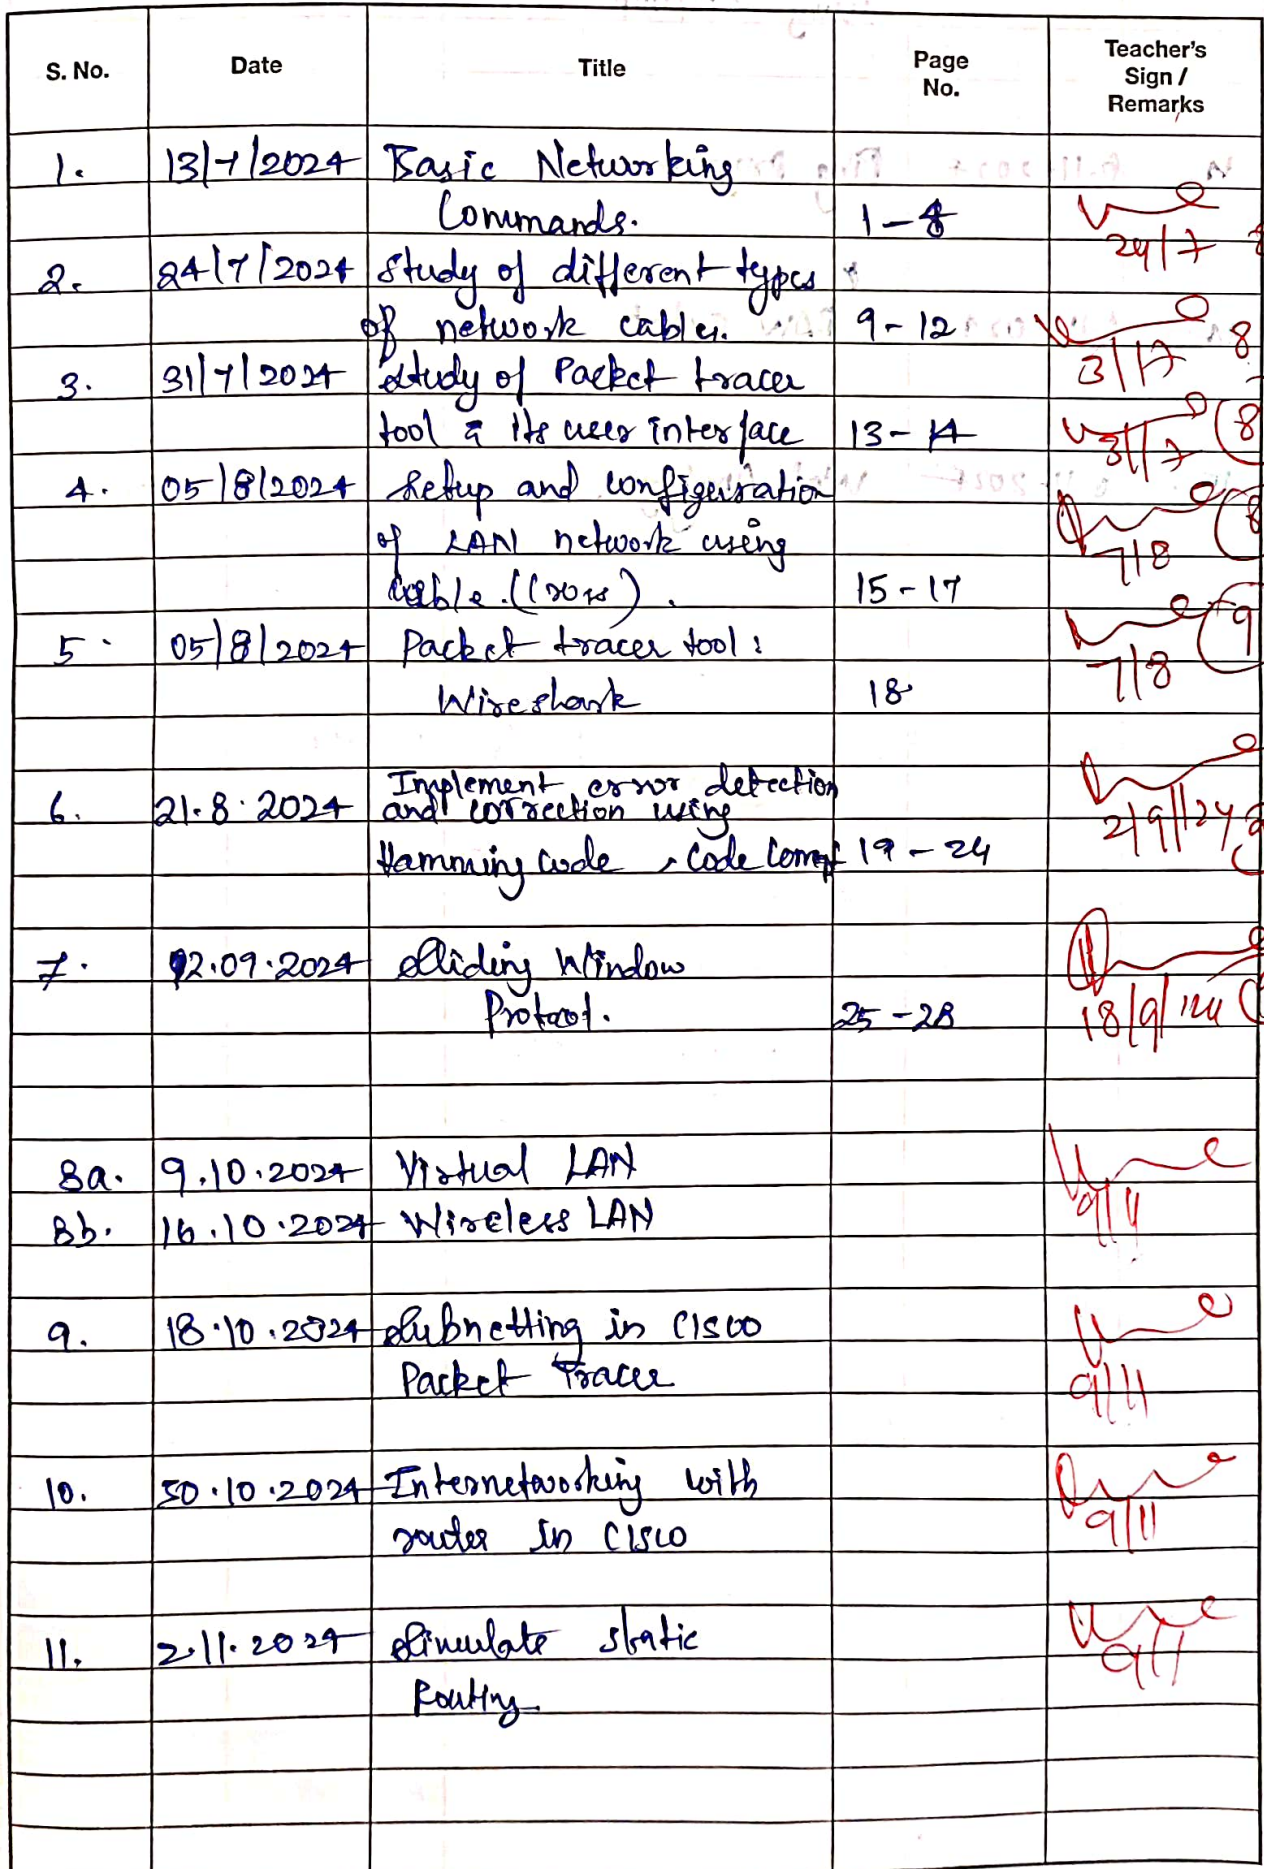 S. No. Date Title Page No. Teacher's Sign / Remarks
1. 13/7/2024 Basic Networking
Commands. 1-8
24/7
2. 24/7/2024 Study of different types
of network cables. 9-12
31/7 8
3. 31/7/2024 Study of Packet tracer
tool & its user interface 13-14
31/7 8
4. 05/8/2024 Setup and configuration
of LAN network using
cable.(Cross). 15-17
7/8 8
5. 05/8/2024 Packet tracer tool:
Wireshark 18
7/8 9
6. 21.8.2024 Implement error detection
and correction using
Hamming code 19-24
2/9/24
7. 12.09.2024 Sliding Window
Protocol. 25-28
18/9/24
8a. 9.10.2024 Virtual LAN
9/11
8b. 16.10.2024 Wireless LAN
9. 18.10.2024 Subnetting in CISCO
Packet Tracer
9/11
10. 30.10.2024 Internetworking with
router in CISCO
9/11
11. 2.11.2024 Simulate static
Routing
9/11